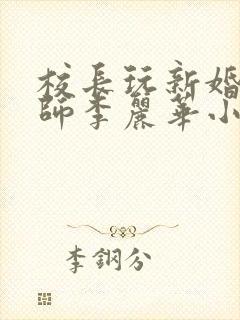 校長玩新婚
師李麗華小
李鋼分